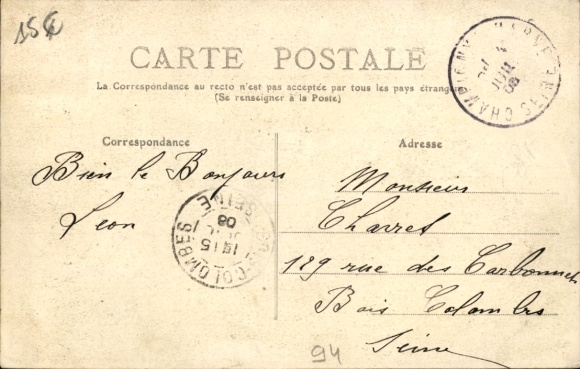 15€
CARTE POSTALE
La Correspondance au recto n'est pas acceptée par tous les pays étrangers
(Se renseigner à la Poste)
Correspondance
Adresse
Bien le Bonjours
Leon
Monsieur
Charret
129 rue des Carbonnets
Bois Colombes
Seine
BOIS-COLOMBES
SEINE
1915
08
CHAMPIGNY S MARNE
JUIL
08
94